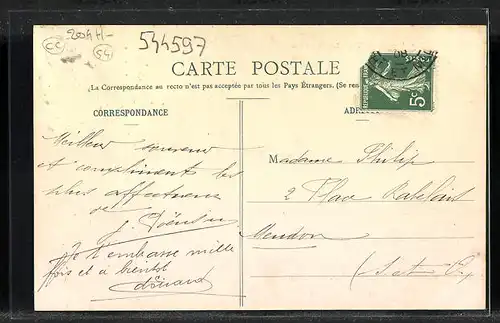 CC
200 H-
54
544597
CARTE POSTALE
La Correspondance au recto n'est pas acceptée par tous les Pays Étrangers. (Se ren
CORRESPONDANCE
ADRE
REPUBLIQUE
5c
Meilleur souvenir
et compliments les
plus affectueux
de
Je t'embrasse mille
fois et à bientôt
Edouard
Madame Philip
2 Place Rabelais
Meudon
(S. et O.)